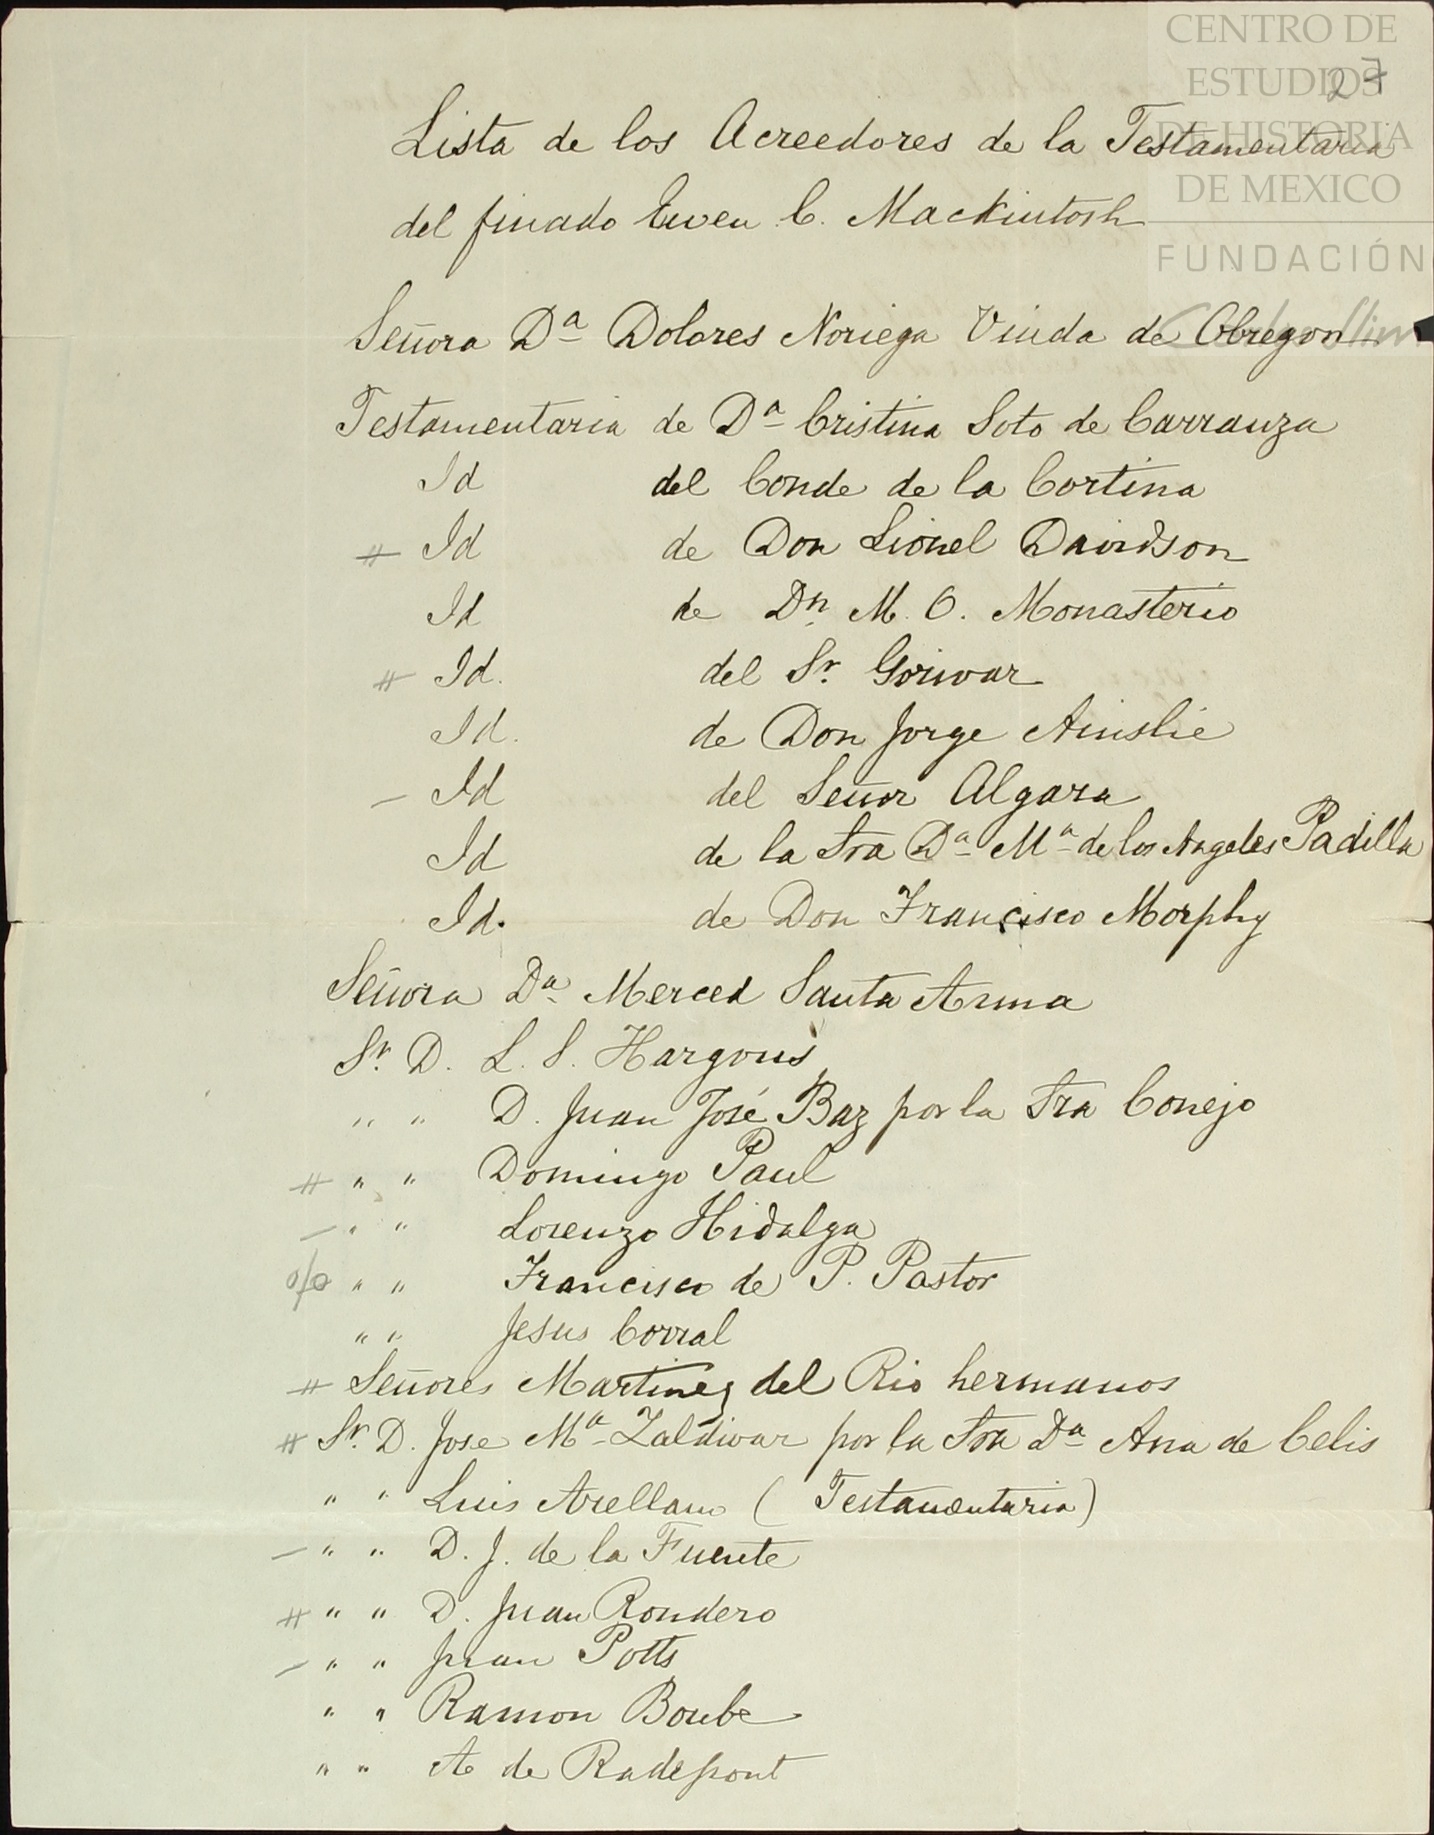 CENTRO DE
ESTUDIOS
27
DE HISTORIA
DE MEXICO
FUNDACIÓN
Lista de los Acreedores de la Testamentaria
del finado Ewen C. Mackintosh
Señora Dª Dolores Noriega Viuda de Obregon
Testamentaria de Dª Cristina Soto de Carranza
Id del Conde de la Cortina
# Id de Don Lionel Davidson
Id de Dn M. O. Monasterio
# Id. del Sr. Gorivar
Id. de Don Jorge Ainslie
— Id del Señor Algara
Id de la Sra Dª Mª de los Angeles Padilla
Id. de Don Francisco Morphy
Señora Dª Merced Santa Anna
Sr. D. L. S. Hargous
" " D. Juan José Baz por la Sra Conejo
# " " Domingo Paul
— " " Lorenzo Hidalga
o/o " " Francisco de P. Pastor
" " Jesus Corral
# Señores Martinez del Rio hermanos
# Sr. D. Jose Mª Zaldivar por la Sra Dª Ana de Celis
" " Luis Arellano (Testamentaria)
— " " D. J. de la Fuente
# " " D. Juan Rondero
— " " Juan Potts
" " Ramon Boube
" " A de Radepont